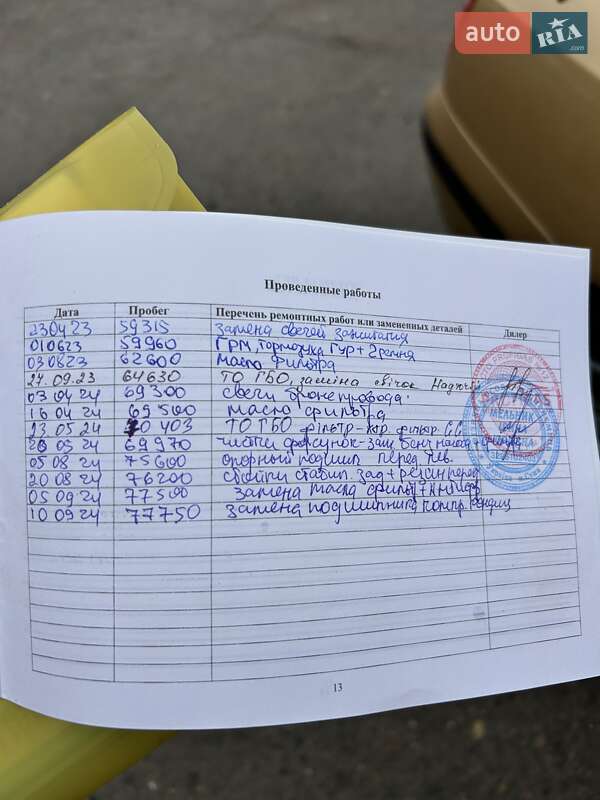 auto RIA.com
Проведенные работы
Дата Пробег Перечень ремонтных работ или замененных деталей Дилер
230423 59315 замена свечей зажигания
010623 59960 ГРМ, тормозуха ГУР + 2 ремня
030823 62600 масло фильтра
27.09.23 64630 ТО ГБО, заміна свічок
03 04 24 69300 свечи бронепровода
16 04 24 69500 масло фильтра
23.05 24 70 403 ТО ГБО фільтр
69970
05 08 24 75600 опорный подшип перед лев.
20 08 24 76200 стабил. зад +
05 09 24 77500 замена масла фильт
10 09 24 77750 замена подшипника компр.
МЕЛЬНИК
13